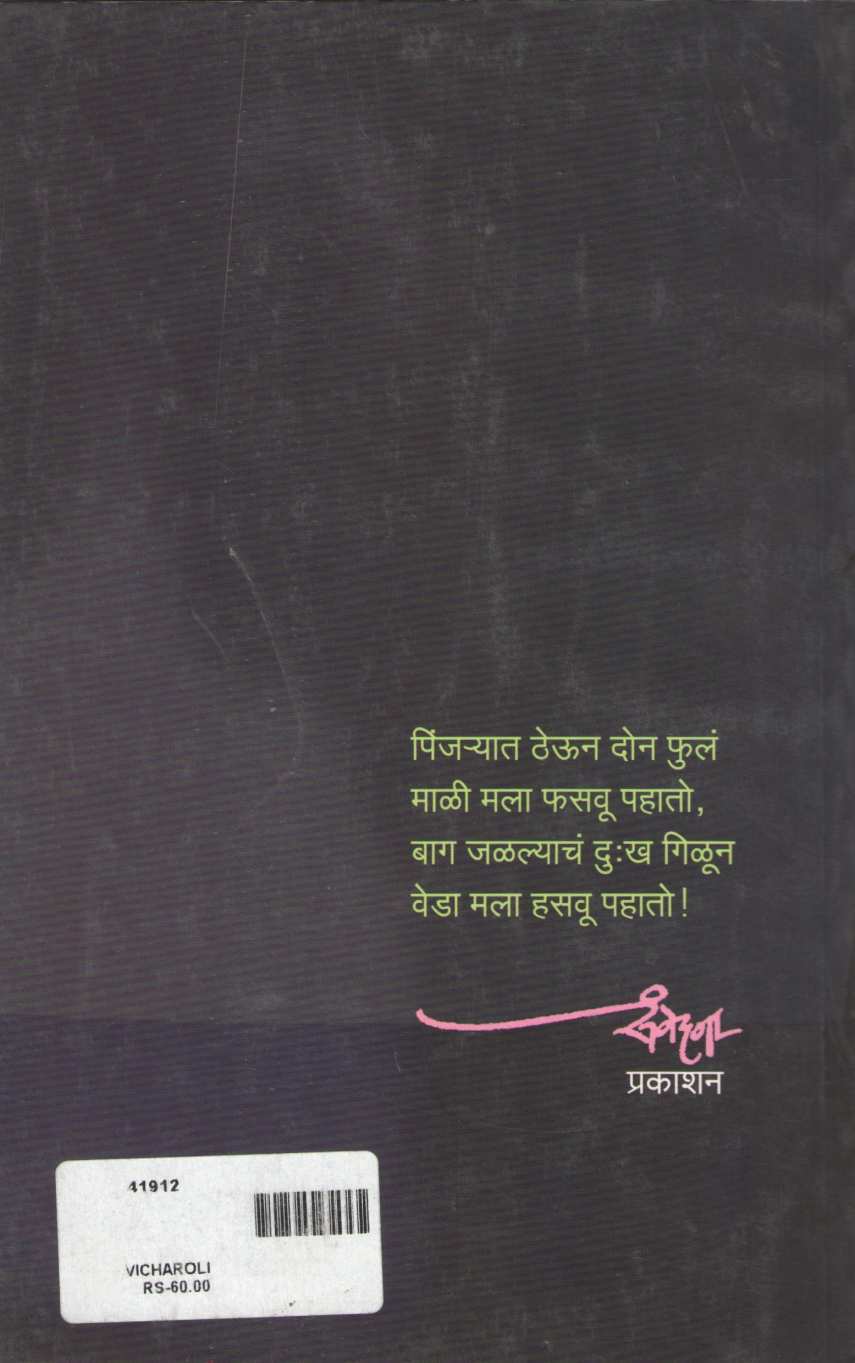 पिंजऱ्यात ठेऊन दोन फुलं
माळी मला फसवू पहातो,
बाग जळल्याचं दुःख गिळून
वेडा मला हसवू पहातो!
संवेदना
प्रकाशन
41912
VICHAROLI
RS-60.00